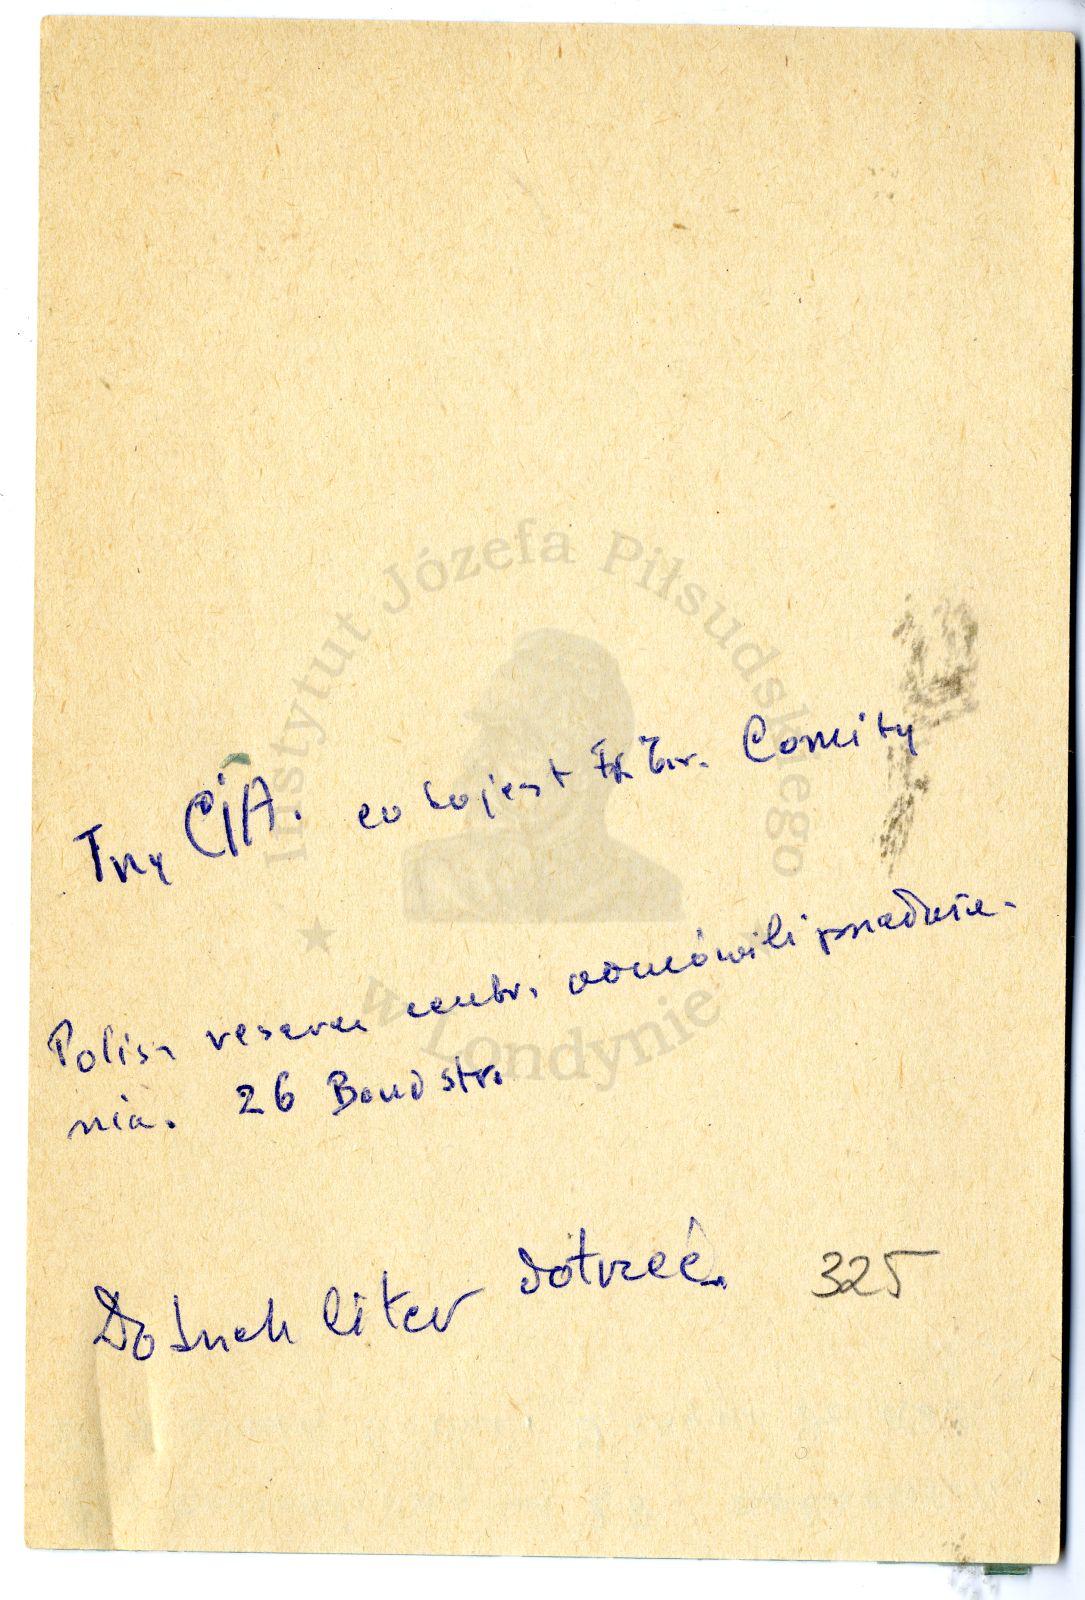 Instytut Józefa Piłsudskiego
w Londynie
Trzy CIA. co to jest Fr. Eur. Comity
Polish reserch centr. odmówili posadwie-
nia. 26 Bond str.
Do trzech liter dotrzeć. 325